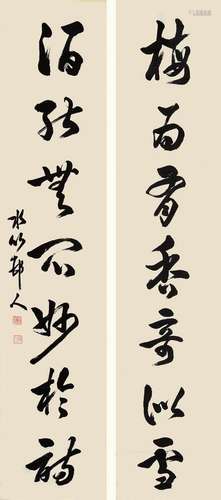 梅有香奇似雪
酒能無妙於詩
水竹邨人